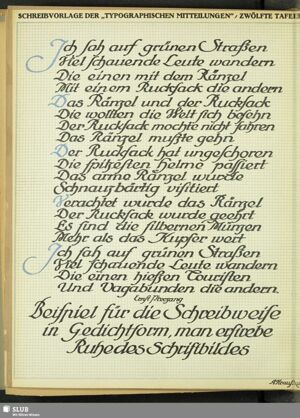 SCHREIBVORLAGE DER „TYPOGRAPHISCHEN MITTEILUNGEN“ / ZWÖLFTE TAFEL
Ich sah auf grünen Straßen
Viel schauende Leute wandern
Die einen mit dem Ränzel
Mit einem Rucksack die andern
Das Ränzel und der Rucksack
Die wollten die Welt sich besehn
Der Rucksack mochte nicht fahren
Das Ränzel mußte gehn
Der Rucksack hat ungeschoren
Die spitzesten Helme passiert
Das arme Ränzel wurde
Schnauzbärtig visitiert
Verachtet wurde das Ränzel
Der Rucksack wurde geehrt
Es sind die silbernen Münzen
Mehr als das Kupfer wert
Ich sah auf grünen Straßen
Viel schauende Leute wandern
Die einen hießen Touristen
Und Vagabunden die andern.
Ernst Preczang
Beispiel für die Schreibweise
in Gedichtform, man erstrebe
Ruhe des Schriftbildes
SLUB
Wir führen Wissen.